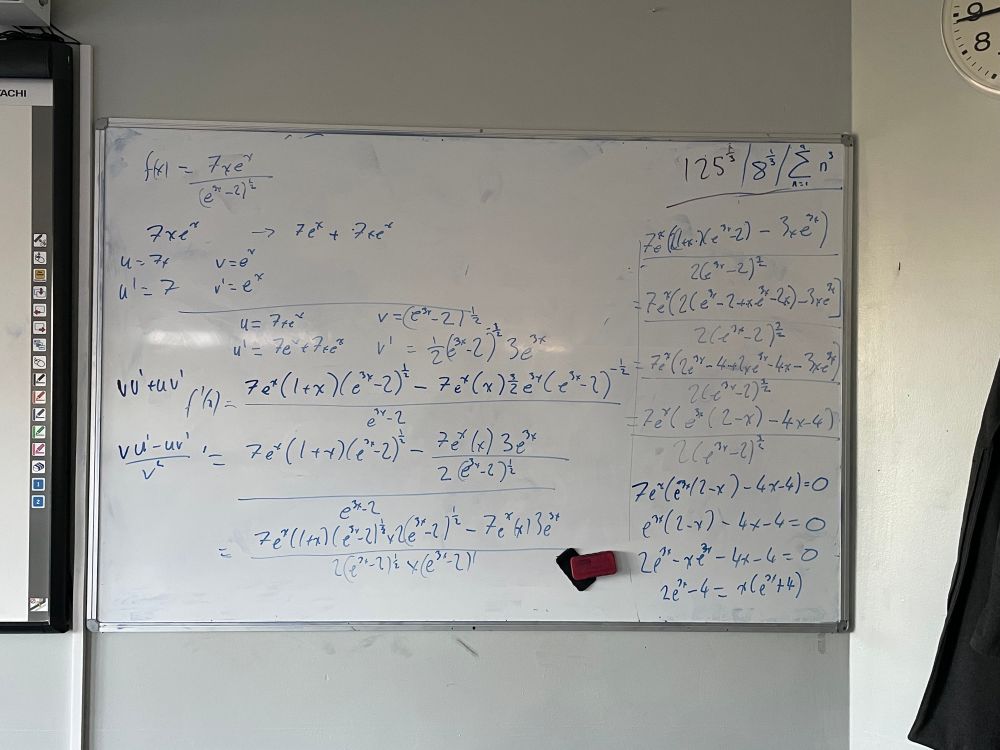 TACHI
9
8
f(x) = 7xeˣ / (e³ˣ-2)^½
7xeˣ → 7eˣ + 7xeˣ
u = 7x v = eˣ
u' = 7 v' = eˣ
u = 7xeˣ v = (e³ˣ-2)^½
u' = 7eˣ+7xeˣ v' = ½(e³ˣ-2)^-½ 3e³ˣ
vu'+uv' f'(x) = 7eˣ(1+x)(e³ˣ-2)^½ - 7eˣ(x) 3/2 e³ˣ(e³ˣ-2)^-½ / e³ˣ-2
vu'-uv' / v² ' = 7eˣ(1+x)(e³ˣ-2)^½ - 7eˣ(x) 3e³ˣ / 2(e³ˣ-2)^½ / e³ˣ-2
= 7eˣ(1+x)(e³ˣ-2)^½ x 2(e³ˣ-2)^½ - 7eˣ(x) 3e³ˣ / 2(e³ˣ-2)^½ x (e³ˣ-2)¹
125^⅓ / 8^⅓ / Σ n=1 n³
7eˣ(2(1+x)(e³ˣ-2) - 3xe³ˣ) / 2(e³ˣ-2)^3/2
= 7eˣ(2(e³ˣ-2+xe³ˣ-2x)-3xe³ˣ] / 2(e³ˣ-2)^3/2
= 7eˣ(2e³ˣ-4+2xe³ˣ-4x-3xe³ˣ) / 2(e³ˣ-2)^3/2
= 7eˣ(e³ˣ(2-x)-4x-4) / 2(e³ˣ-2)^3/2
7eˣ(e³ˣ(2-x)-4x-4)=0
e³ˣ(2-x)-4x-4=0
2e³ˣ-xe³ˣ-4x-4=0
2e³ˣ-4 = x(e³ˣ+4)